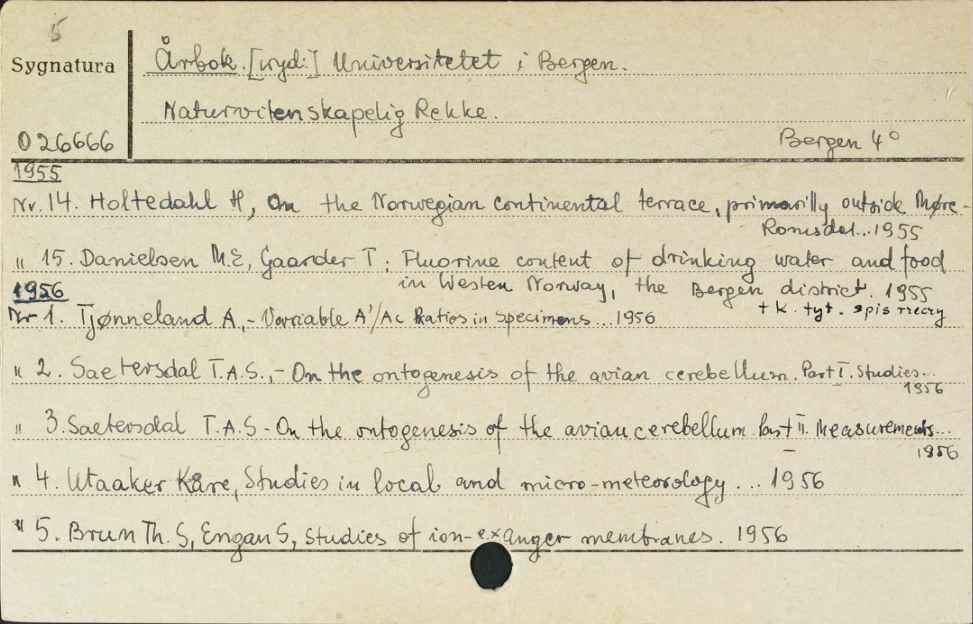 5
Sygnatura
Årbok. [wyd:] Universitetet i Bergen.
Naturvitenskapelig Rekke.
026666
Bergen 4°
1955
Nr. 14. Holtedahl H, On the Norwegian continental terrace, primarilly outside Møre-
Romsdal...1955
" 15. Danielsen M.E, Gaarder T: Fluorine content of drinking water and food
in Westen Norway, the Bergen district. 1955
1956
Nr 1. Tjønneland A,- Varriable A'/Ac Ratios in specimens...1956
+ k. tyt. spis rzeczy
" 2. Saetersdal T.A.S.,- On the ontogenesis of the avian cerebellum. Part I. Studies...
1956
" 3. Saetersdal T.A.S - On the ontogenesis of the avian cerebellum Part II. Measurements...
1956
" 4. Utaaker Kåre, Studies in local and micro-meteorology... 1956
" 5. Brun Th. S, Engan S, Studies of ion-exanger membranes. 1956